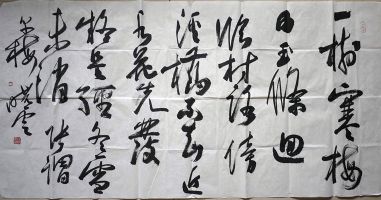 一樹寒梅
白玉條迥
臨村路傍
溪橋不知近
水花先發
疑是經冬雪
未消 張謂
早梅 曉雲